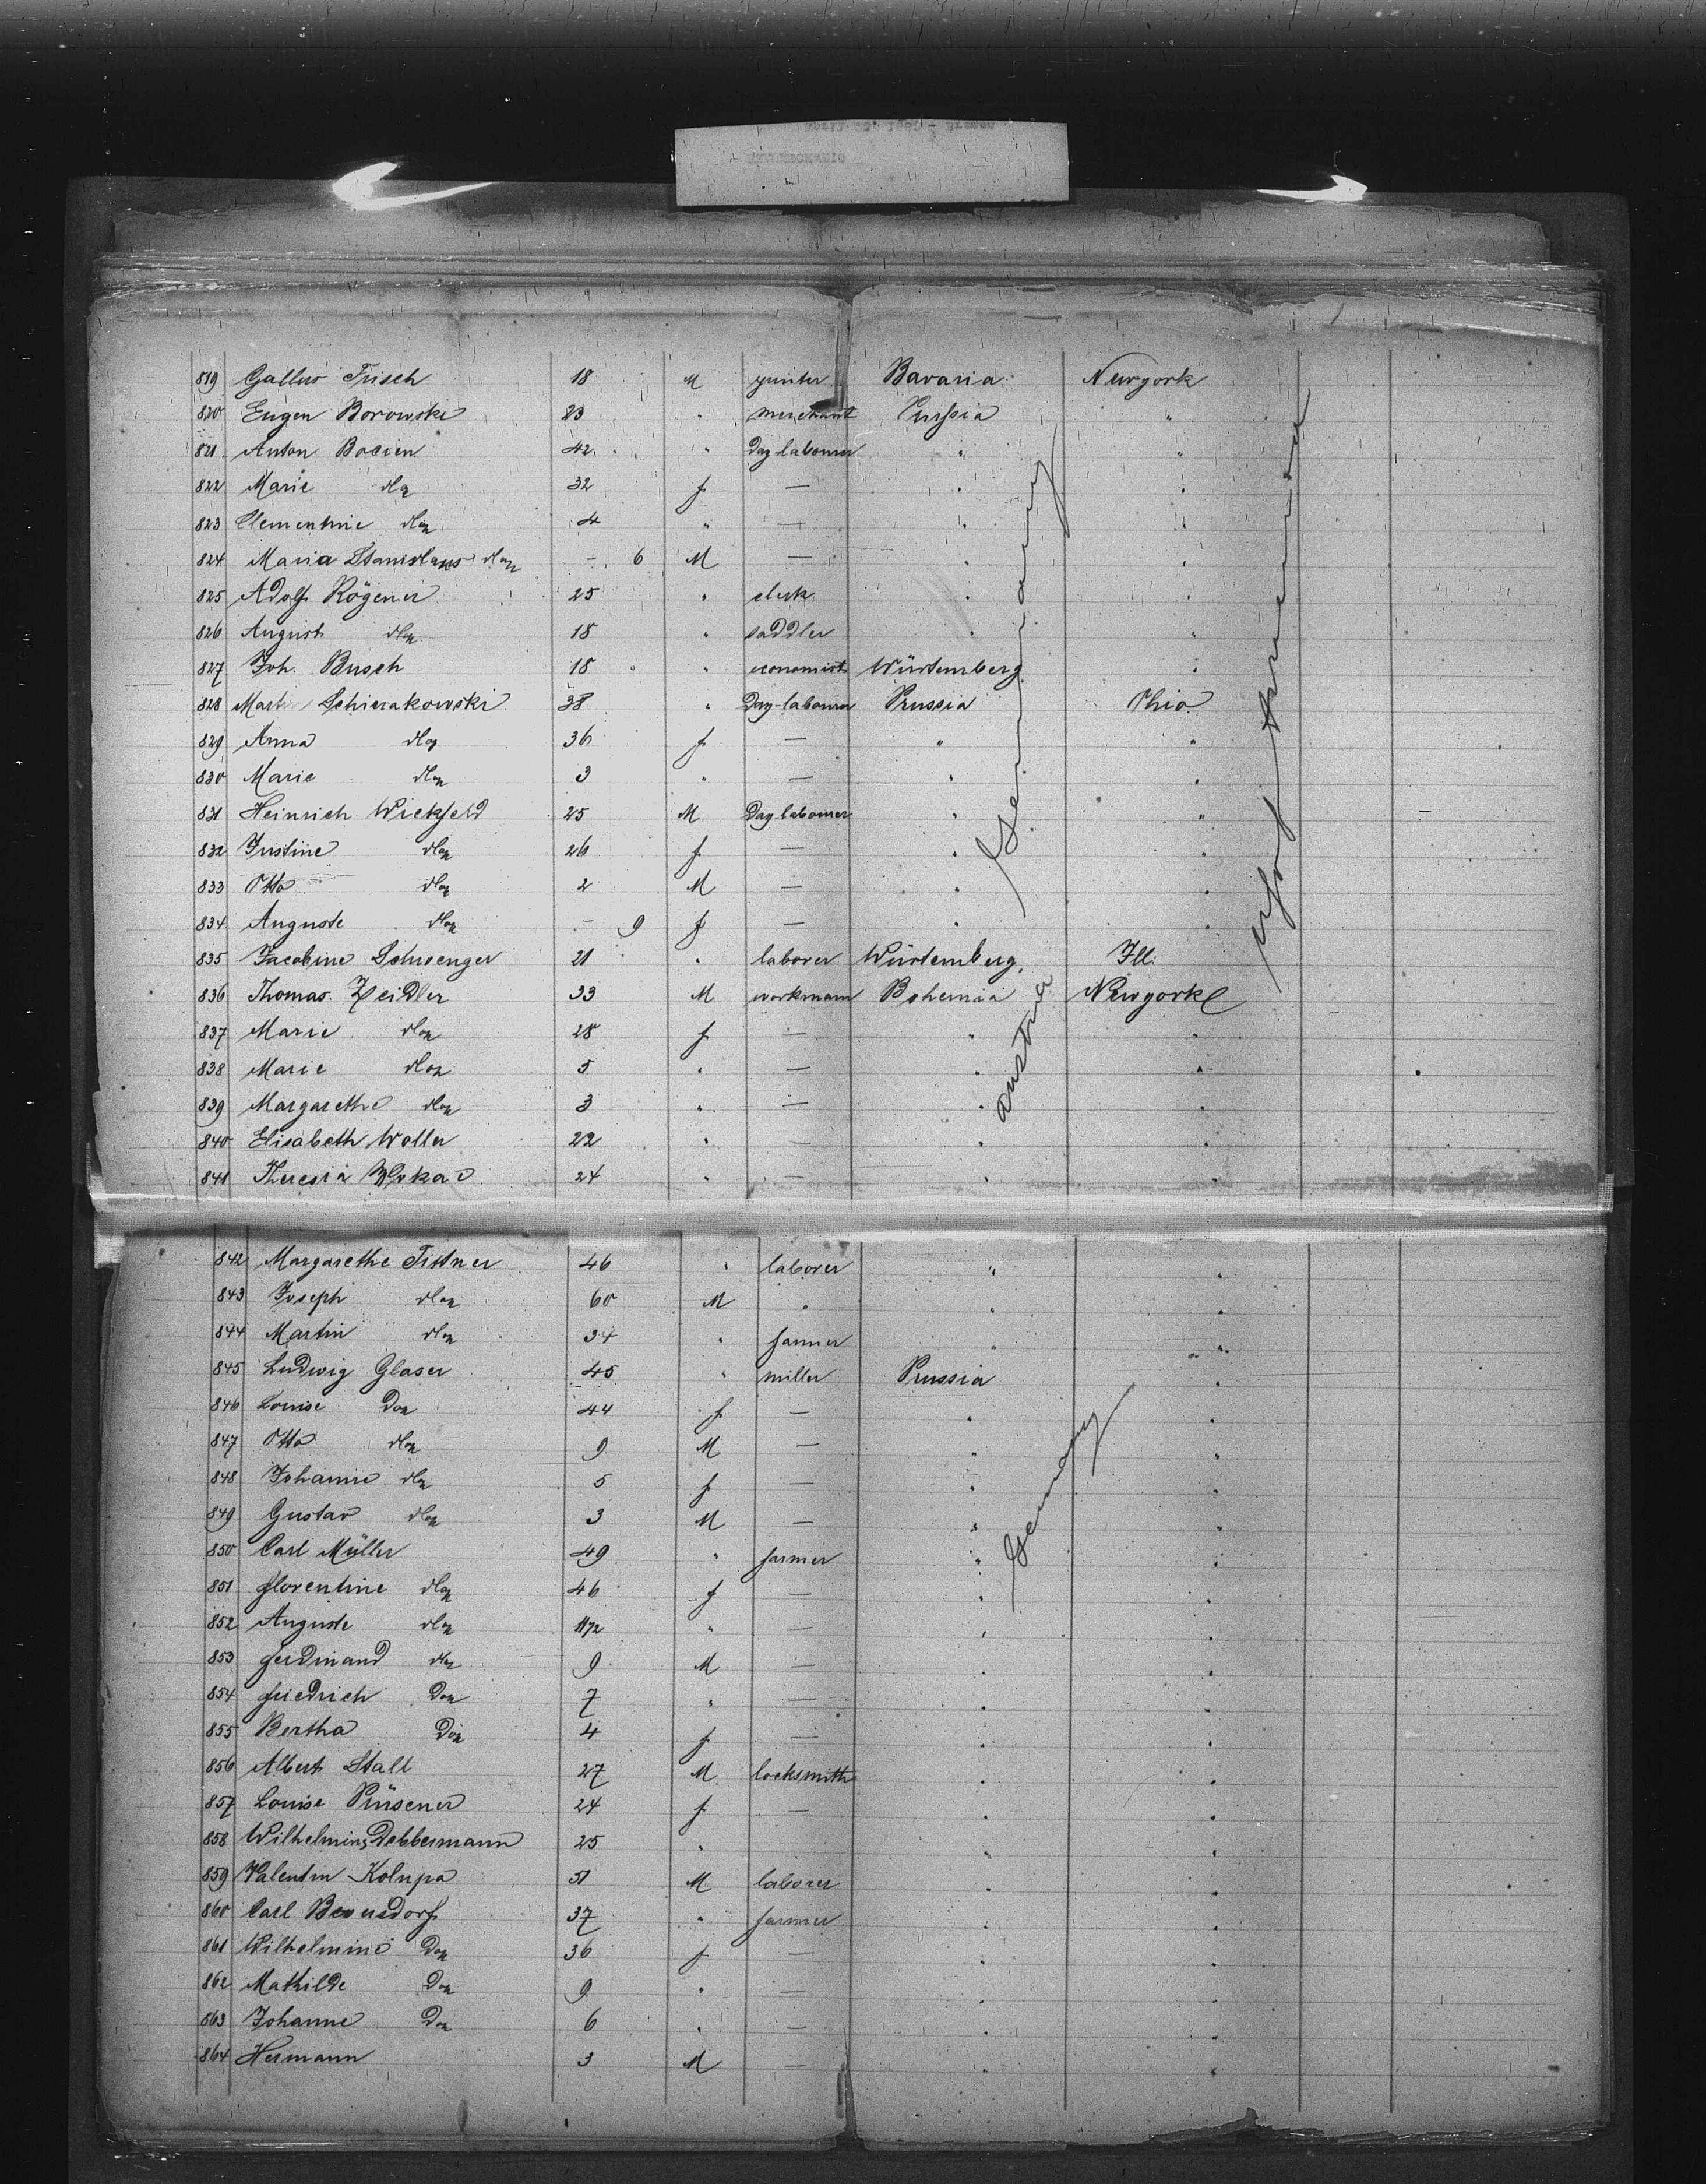 819 Gallus Frisch 18 M printer Bavaria Newyork
820 Eugen Borowski 23 " merchant Prussia "
821 Anton Bocien 42 " Day labourer " "
822 Marie do 32 f — " "
823 Clementine do 4 " — " "
824 Maria Stanislaus do – 6 M — " "
825 Adolf Rögener 25 " clerk " "
826 August do 18 " saddler " "
827 Joh. Busch 18 " economist Würtemberg "
828 Martin Schierakowski 38 " Day-labourer Prussia Ohio
829 Anna do 36 f — " "
830 Marie do 3 " — " "
831 Heinrich Wickfeld 25 M Day labourer " "
832 Justine do 26 f — " "
833 Otto do 2 M — " "
834 Auguste do – 9 f — " "
835 Jacobine Schwenger 21 " laborer Würtemberg, Ill.
836 Thomas Zeidler 33 M workmann Bohemia Newyork
837 Marie do 28 f — " "
838 Marie do 5 " — " "
839 Margarethe do 3 " — " "
840 Elisabeth Woller 22 " — " "
841 Theresia 24 " — " "
Germany
Austria
842 Margarethe Tittner 46 " laborer " "
843 Joseph do 60 M " " "
844 Martin do 34 " farmer " "
845 Ludwig Glaser 45 " miller Prussia "
846 Louise Do 44 f — " "
847 Otto do 9 M — " "
848 Johanne do 5 f — " "
849 Gustav do 3 M — " "
850 Carl Müller 49 " farmer " "
851 florentine do 46 f — " "
852 Auguste do " — " "
853 ferdinand do 9 M — " "
854 friedrich Do 7 " — " "
855 Bertha Do 4 f — " "
856 Albert Stall 27 M locksmith " "
857 Louise Pürsener 24 f — " "
858 Wilhelmine Debbermann 25 " " "
859 Valentin Kolupa 51 M laborer " "
860 Carl Bewersdorf 37 " farmer " "
861 Wilhelmine Do 36 f — " "
862 Mathilde Do 9 " — " "
863 Johanne Do 6 " — " "
864 Hermann 3 M — " "
Germany